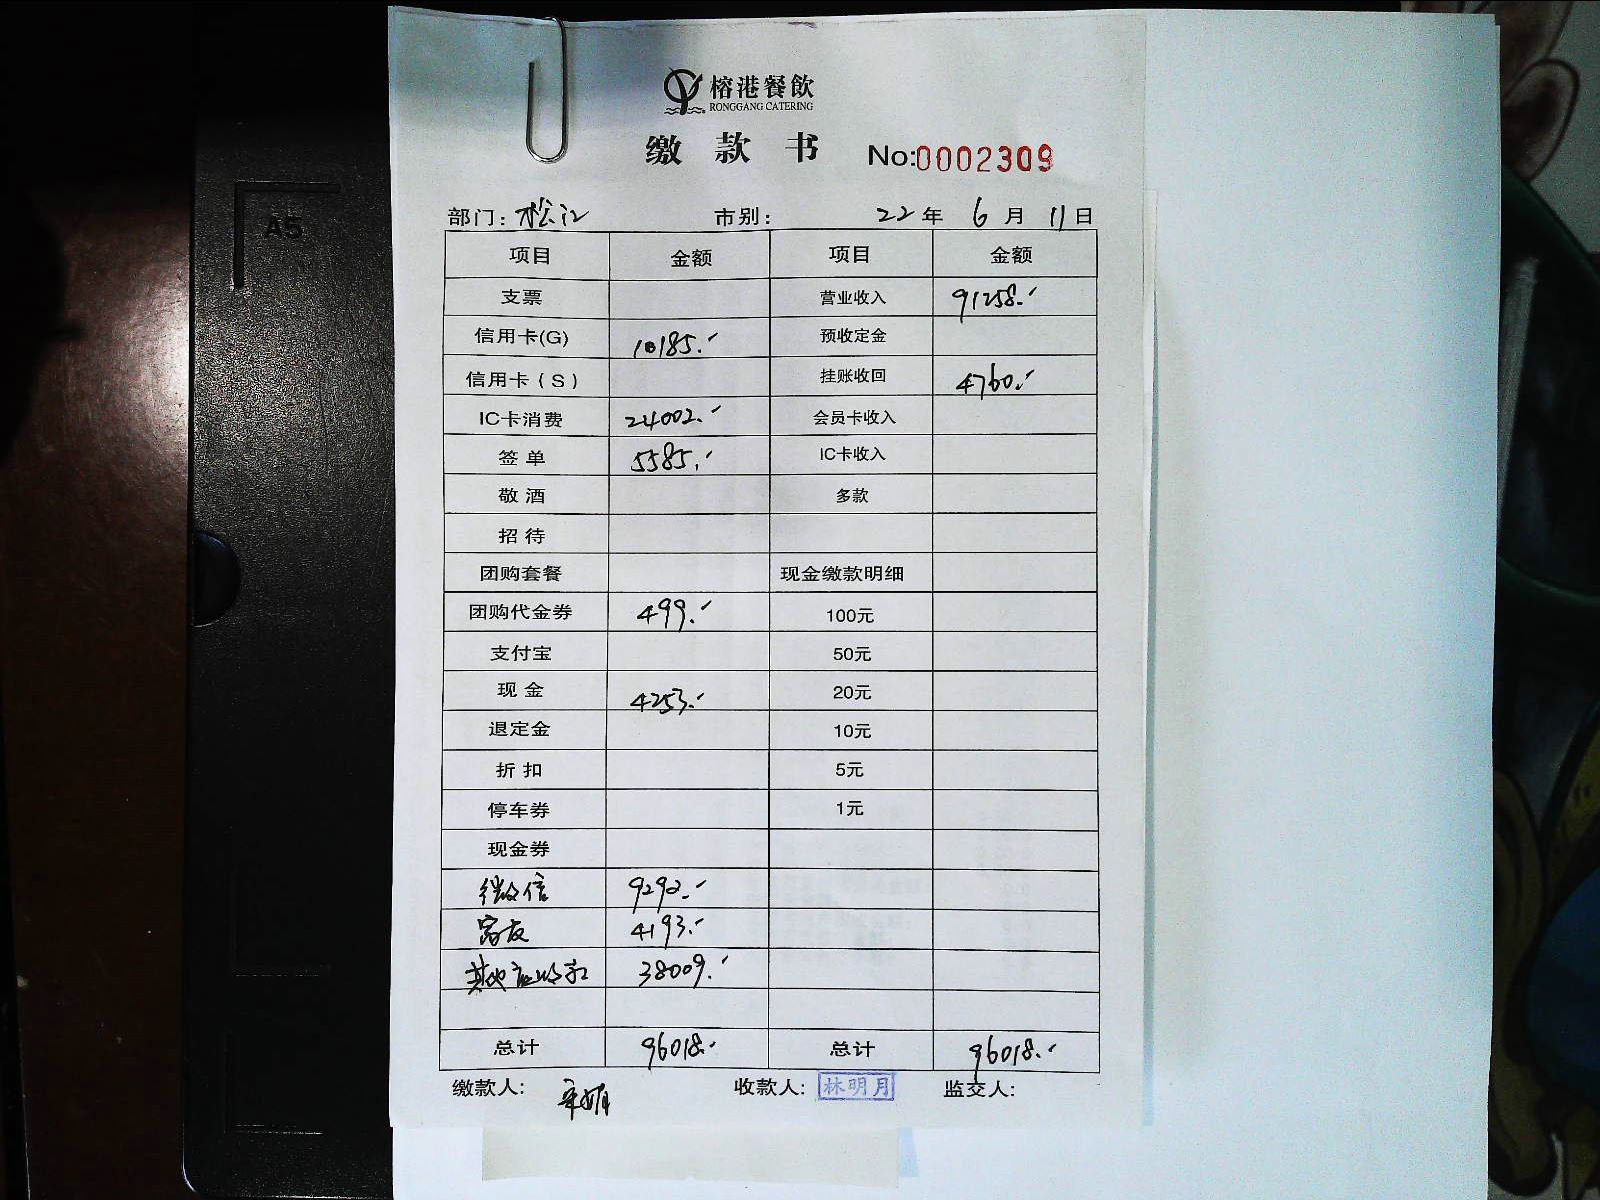 A5
榕港餐飲
RONGGANG CATERING
缴款书 No:0002309
部门: 松江 市别: 22年 6月 11日
项目 金额 项目 金额
支票 营业收入 91258.-
信用卡(G) 10185.- 预收定金
信用卡(S) 挂账收回 4760.-
IC卡消费 24002.- 会员卡收入
签单 5585.- IC卡收入
敬酒 多款
招待
团购套餐 现金缴款明细
团购代金券 499.- 100元
支付宝 50元
现金 4253.- 20元
退定金 10元
折扣 5元
停车券 1元
现金券
微信 9292.-
客友 4193.-
其他应收款 38009.-
总计 96018.- 总计 96018.-
缴款人: 收款人: 林明月 监交人: